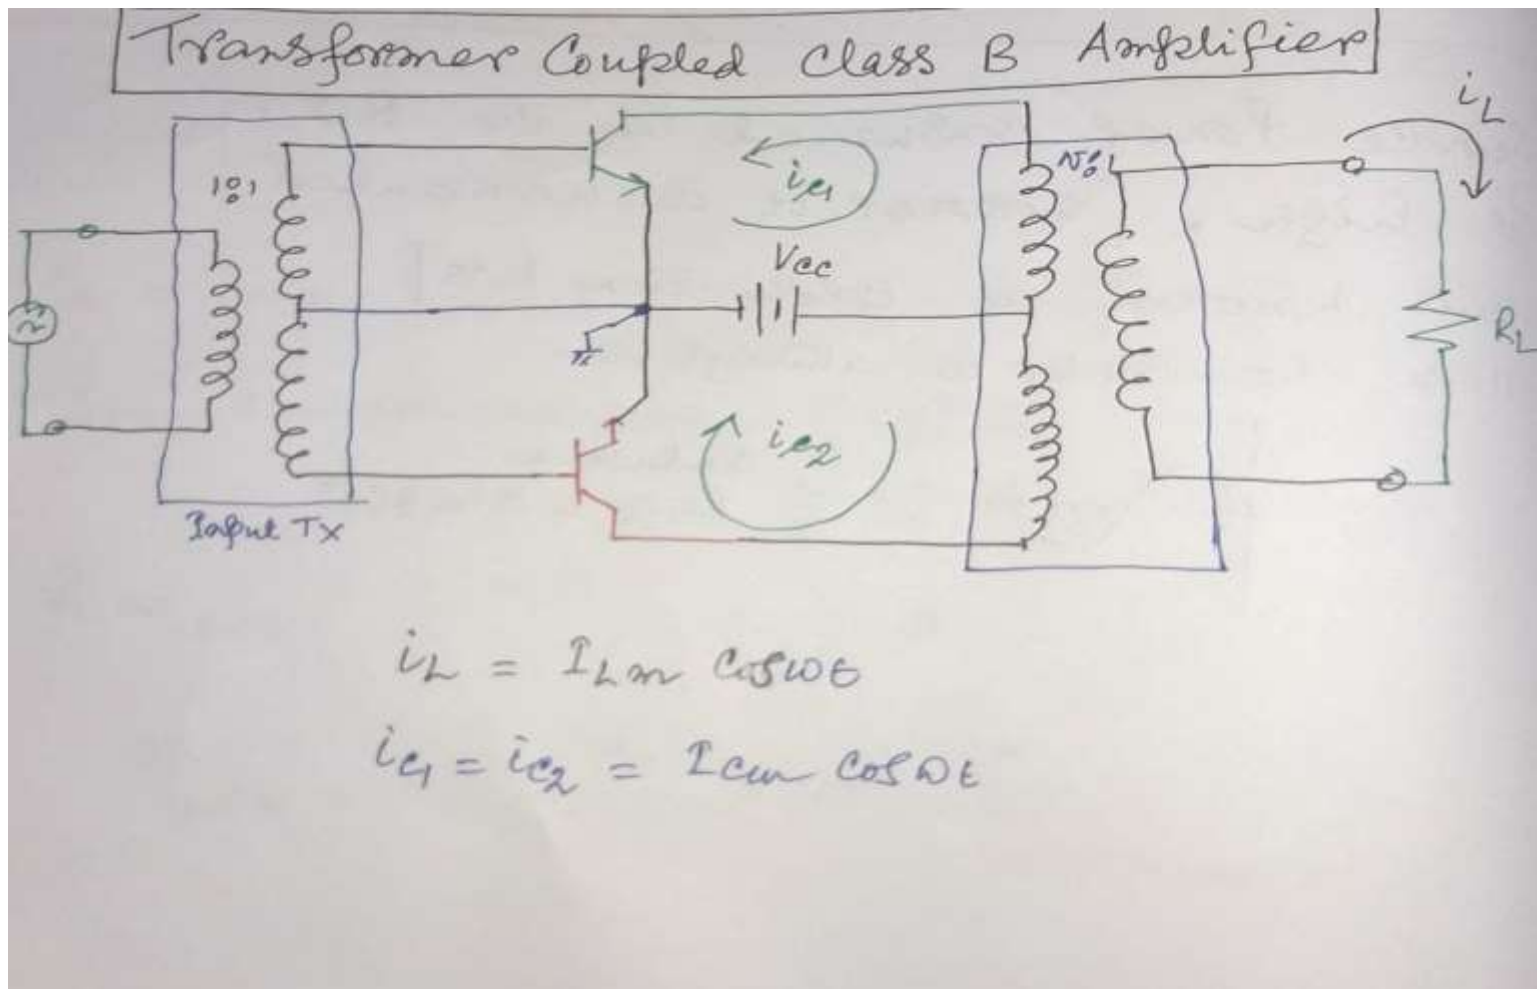 Transformer Coupled Class B Amplifier
iL
1:1
ic1
N:1
Vcc
RL
ic2
Input Tx
iL = ILm cosωt
ic1 = ic2 = Icm cosωt